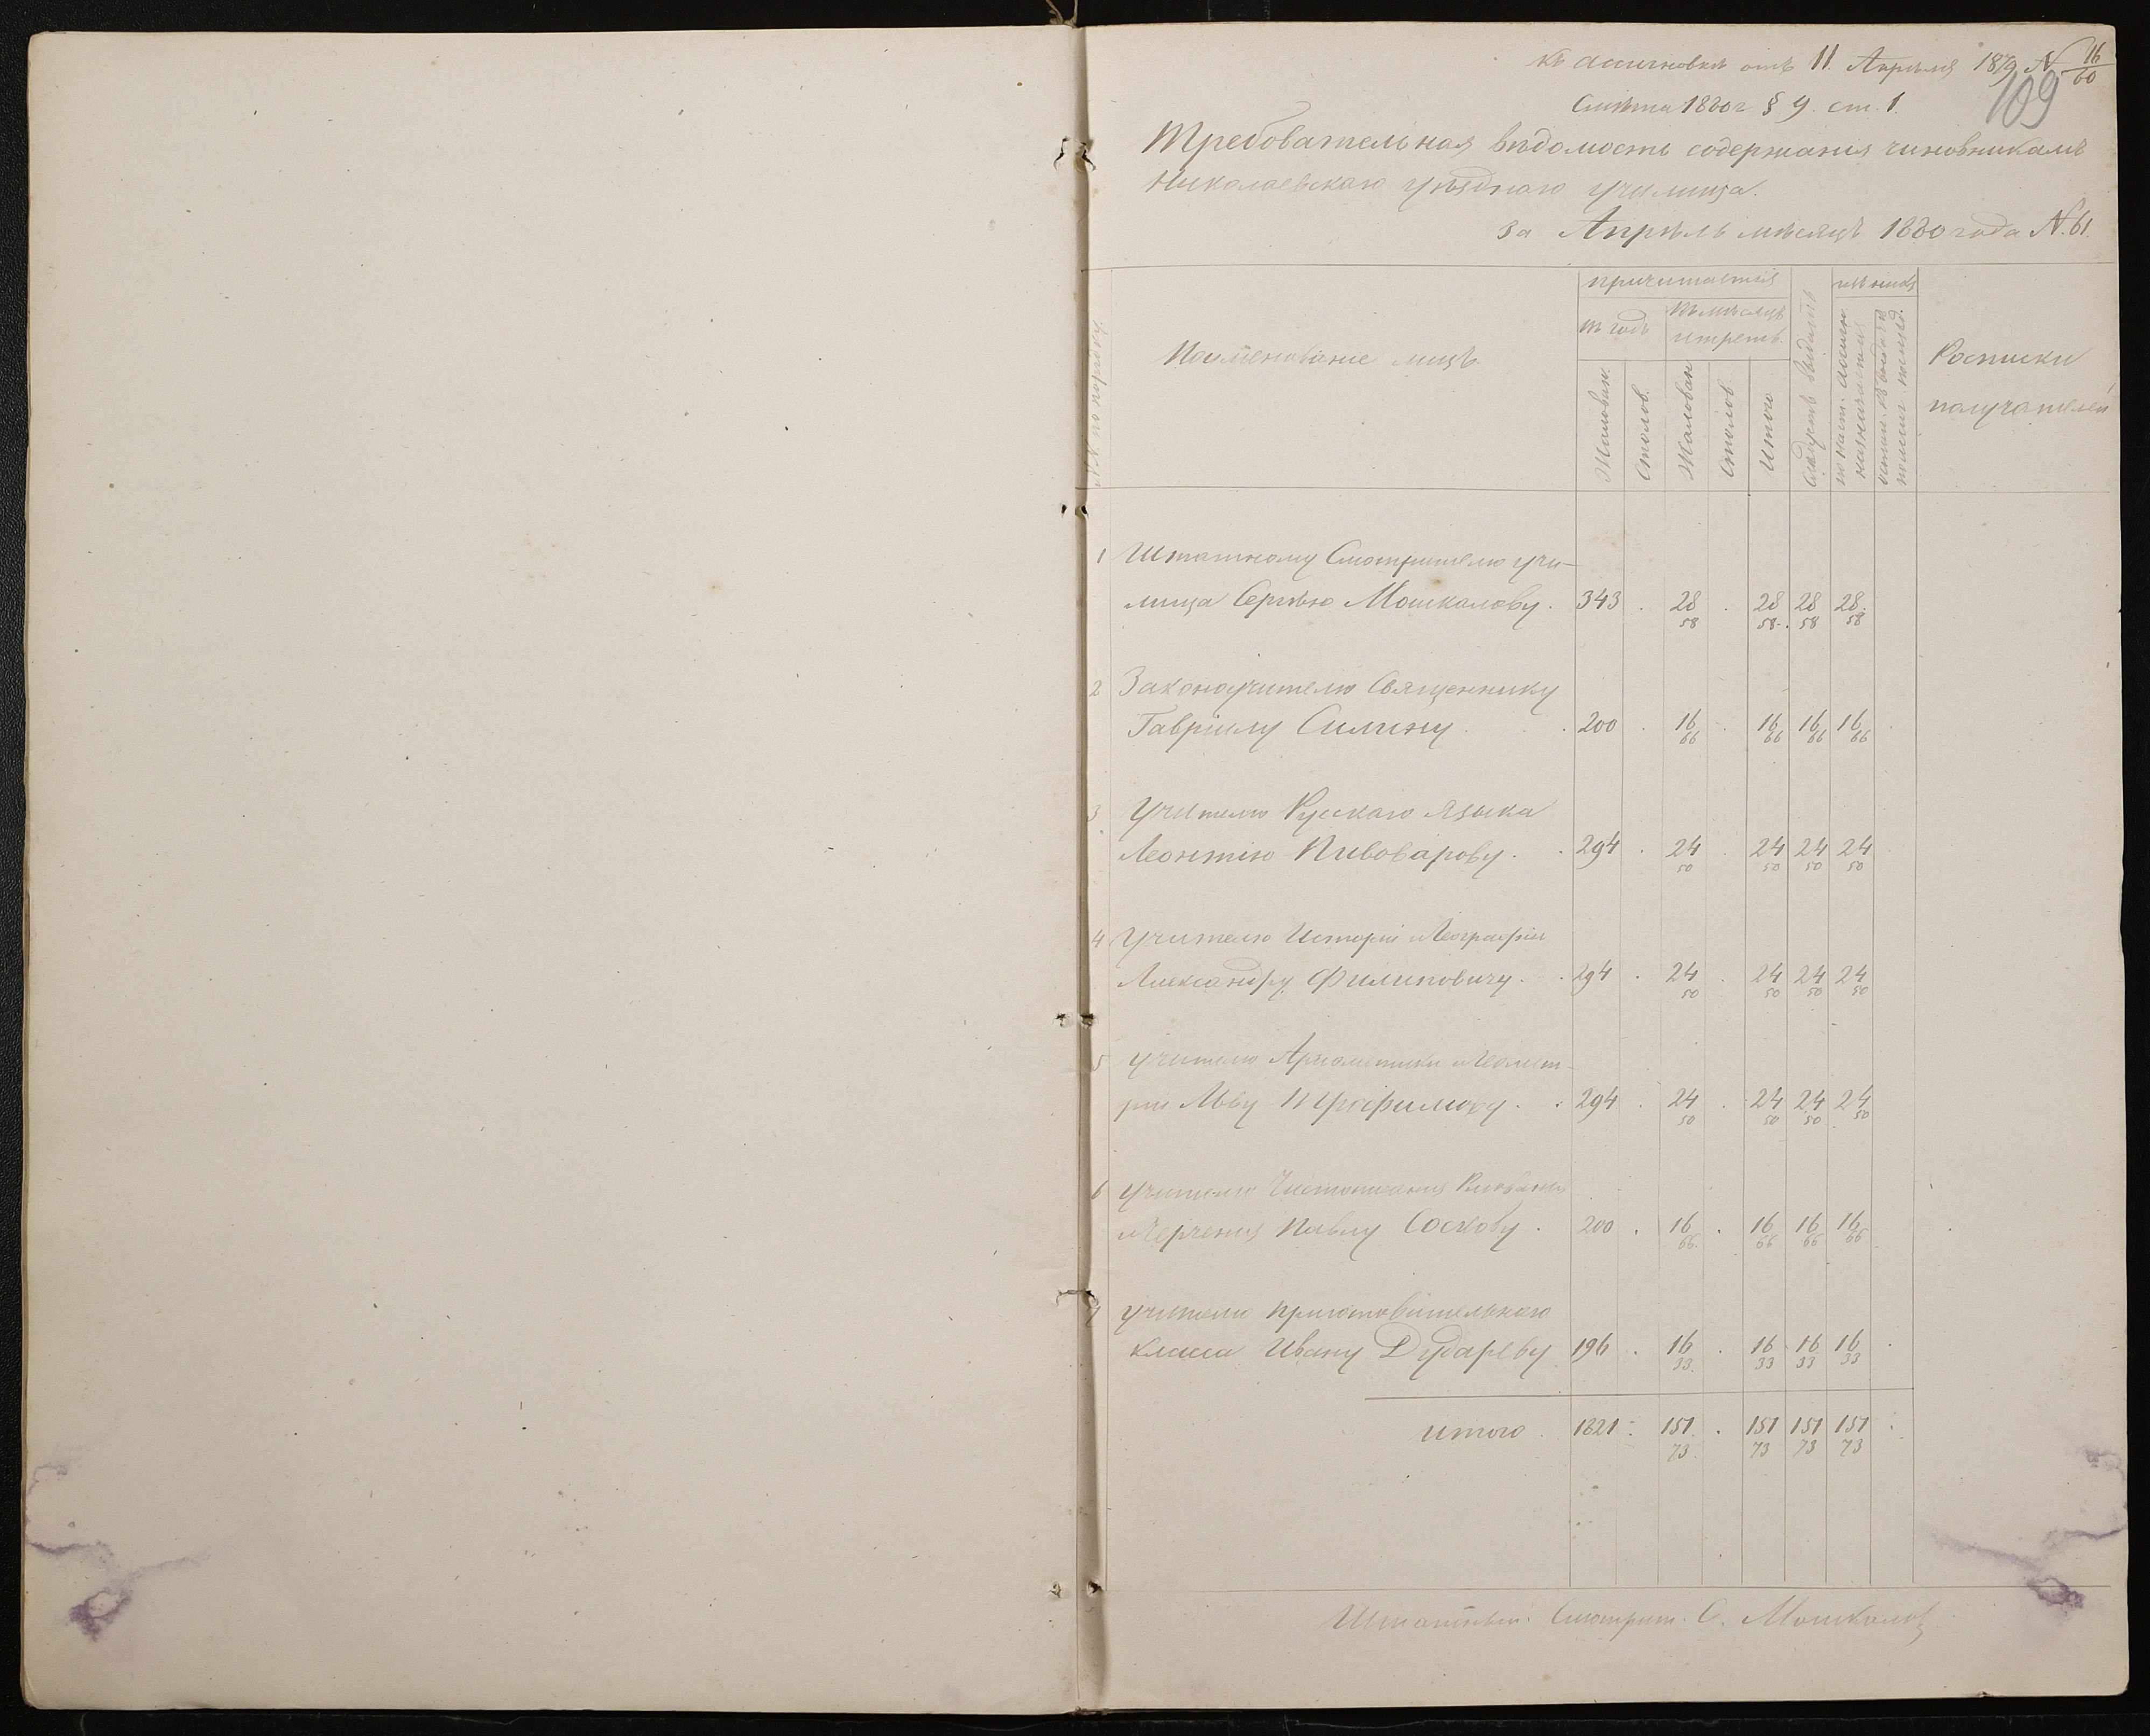 Къ ассигновкѣ отъ 11. Апрѣля 1879 N 16/60
109
Смѣта 1880 г § 9. ст. 1.
Требовательная вѣдомость содержанія чиновникамъ
Николаевскаго уѣзднаго училища.
за Апрѣль мѣсяцъ 1880 года N. 61.
N.N по порядку.
Наименованіе лицъ.
причитается
въ годъ
въ мѣсяцъ
и треть.
Жалован.
Столов.
Жалован
Столов
Итого
Слѣдуетъ выдать
изъ нихъ
по наст. ассигн
назначается
Росписки
получателей
1 Штатному Смотрителю учи-
лища Сергѣю Мошкалову. 343 . 28 58 . 28 58 28 58 28 58
2 Законоучителю Священнику
Гавріилу Силину . . 200 . 16 66 . 16 66 16 66 16 66
3 Учителю Рускаго языка
Леонтію Пивоварову . . 294 . 24 50 . 24 50 24 50 24 50
4 Учителю Исторіи и Географіи
Александру Филиповичу . . 294 . 24 50 . 24 50 24 50 24 50
5 Учителю Арифметики и Геомет-
ріи Льву Трофимову . . 294 . 24 50 . 24 50 24 50 24 50
6 Учителю Чистописанія Рисованія
и Черченія Павлу Соскову . 200 . 16 66 . 16 66 16 66 16 66
7 Учителю приготовительнаго
класса Ивану Дудареву 196 . 16 33 . 16 33 16 33 16 33
итого . 1821 . 151 73 . 151 73 151 73 151 73
Штатный Смотрит. С. Мошкалов